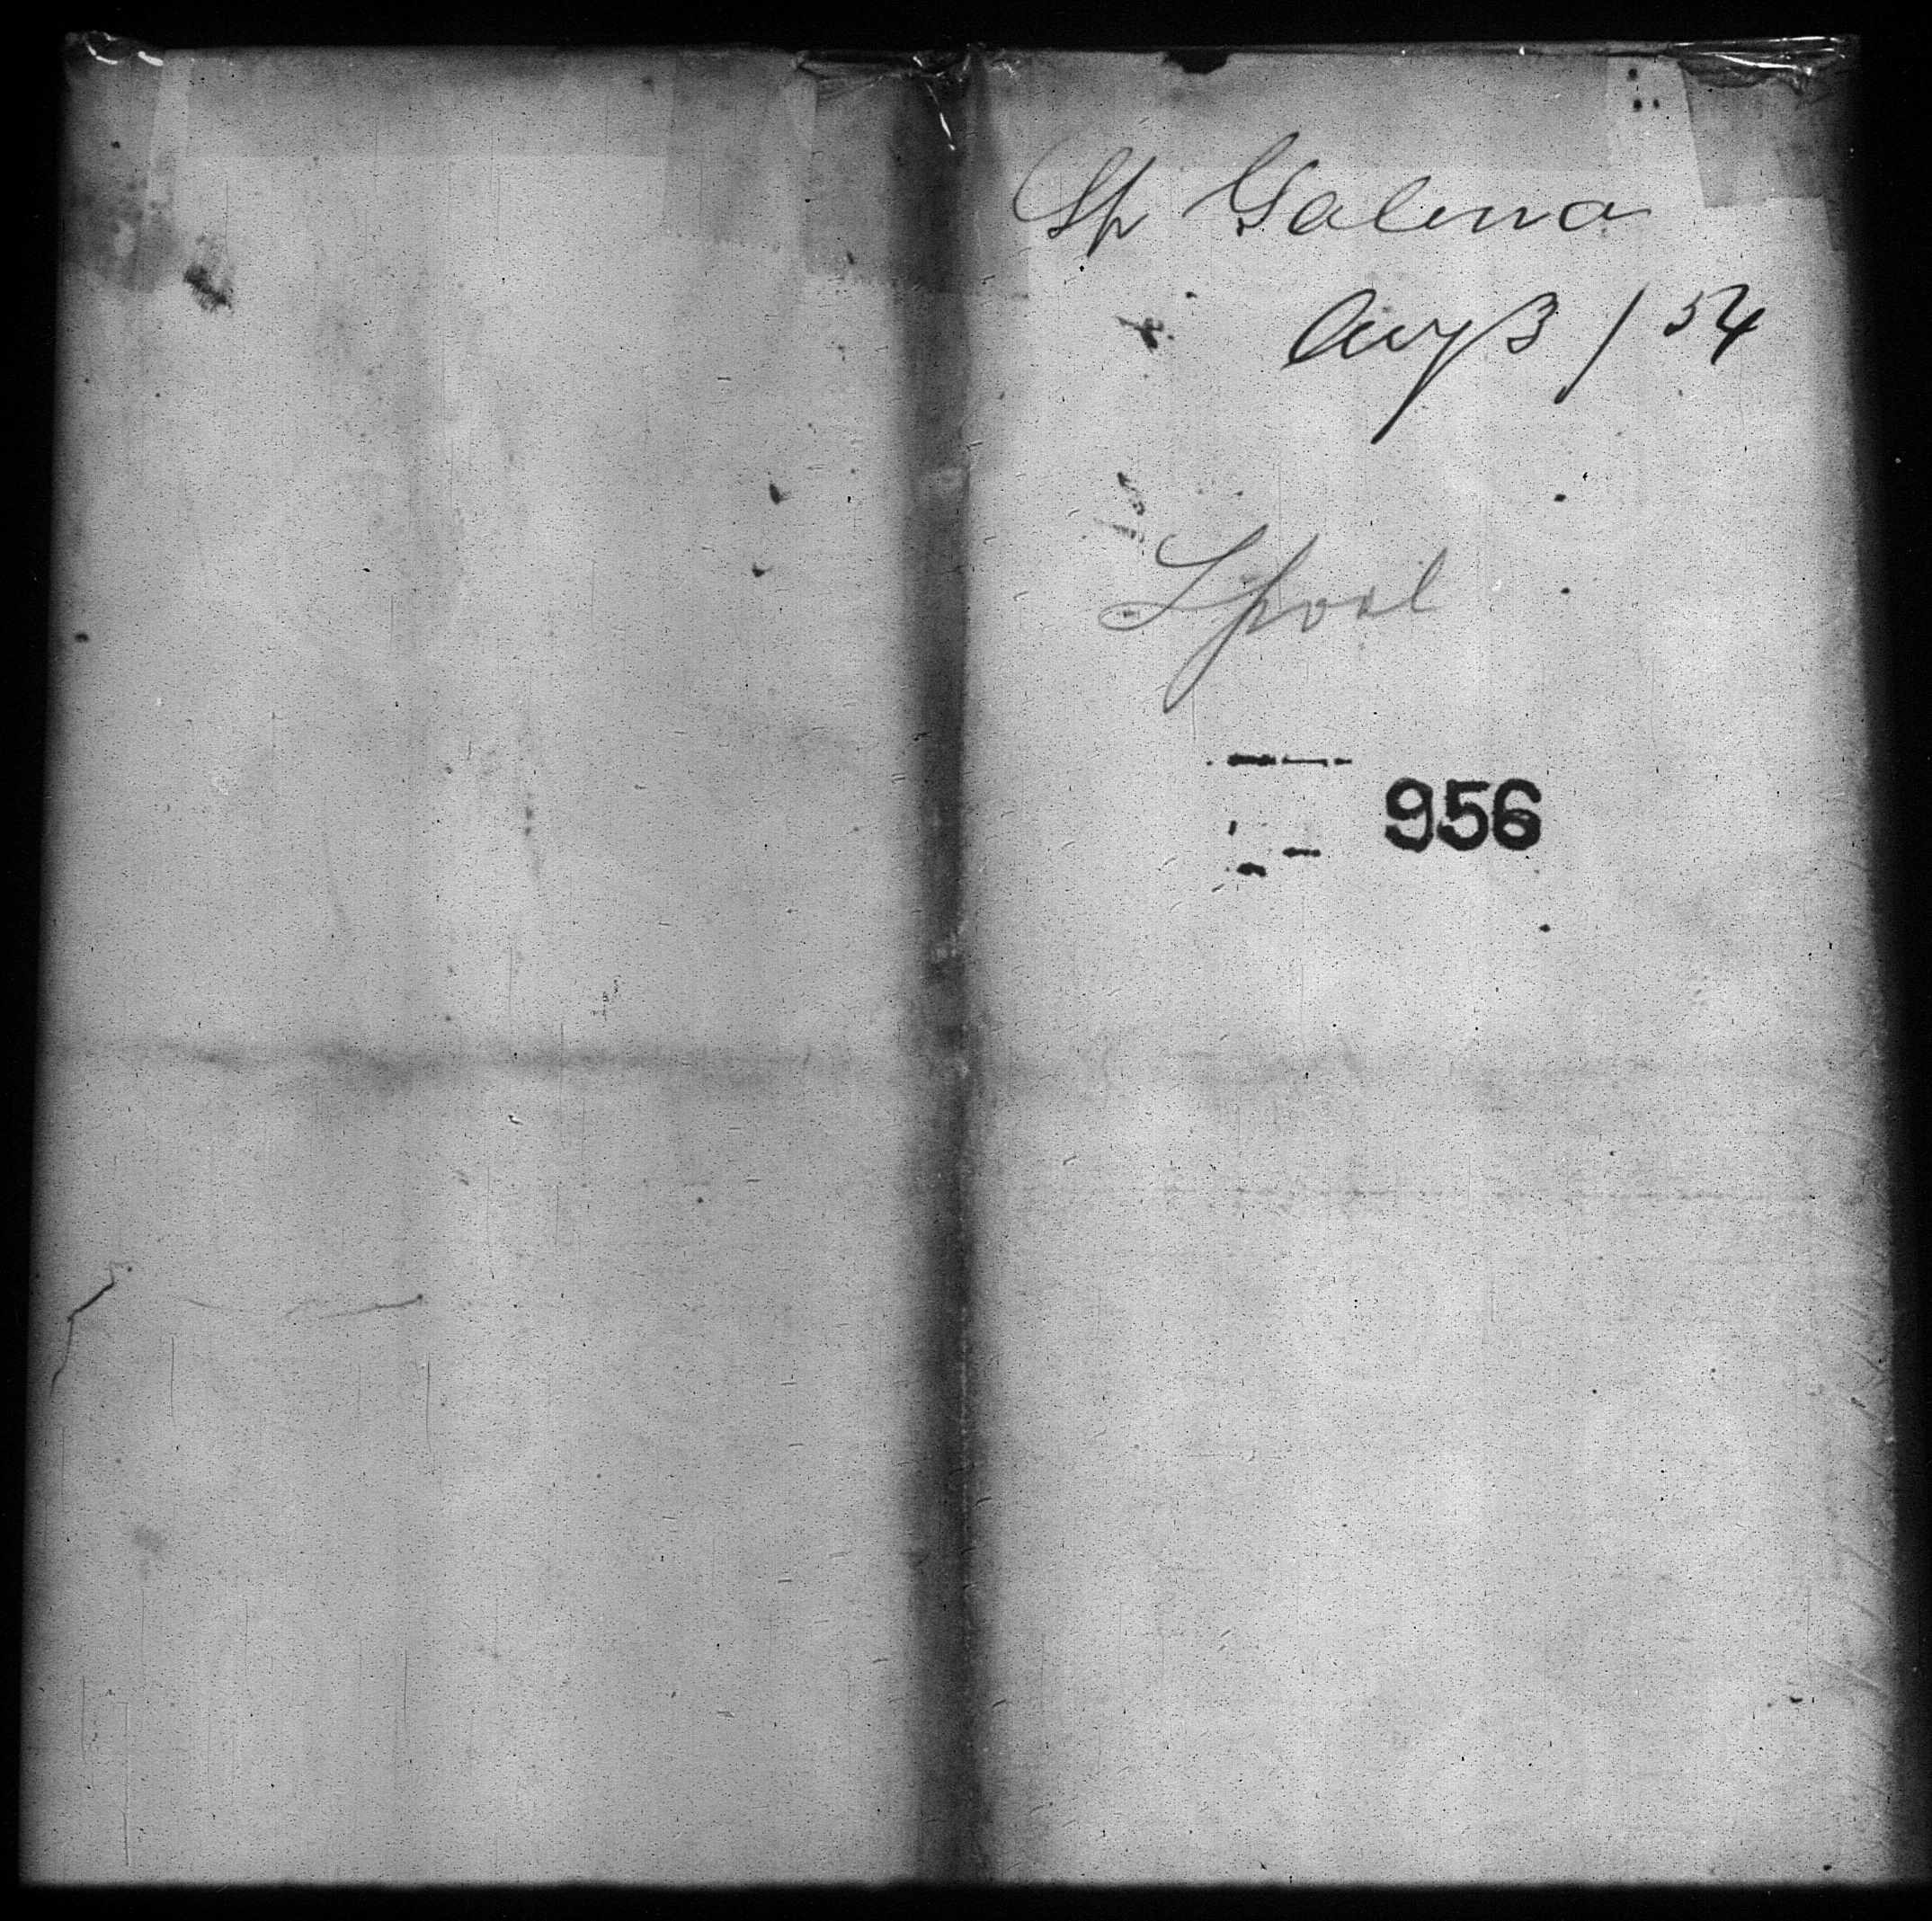 Sh Galena
Aug 3 / 54
Lpool
956